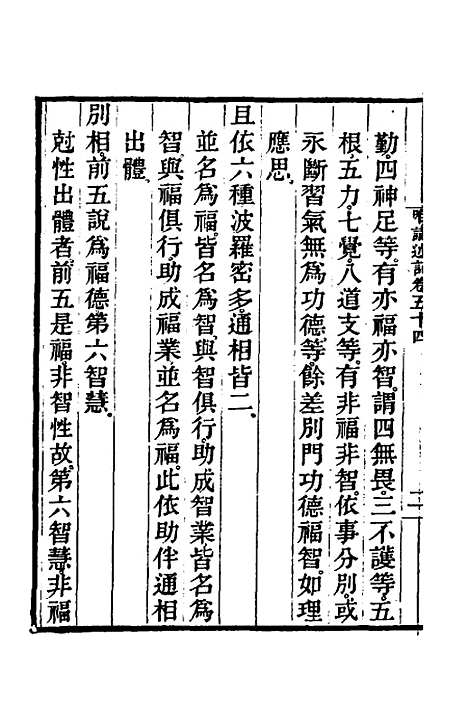 唯識述記卷五十四
勤、四神足等。有亦福亦智。謂四無畏。三不護等。五
根、五力、七覺、八道支等。有非福非智。依事分別。或
永斷習氣無為功德等。餘差別門功德福智。如理
應思。
且依六種波羅密多。通相皆二、
並名為福。皆名為智。與智俱行。助成智業。皆名為
智。與福俱行。助成福業。並名為福。此依助伴通相
出體。
別相。前五說為福德。第六智慧。
尅性出體者。前五是福。非智性故。第六智慧。非福